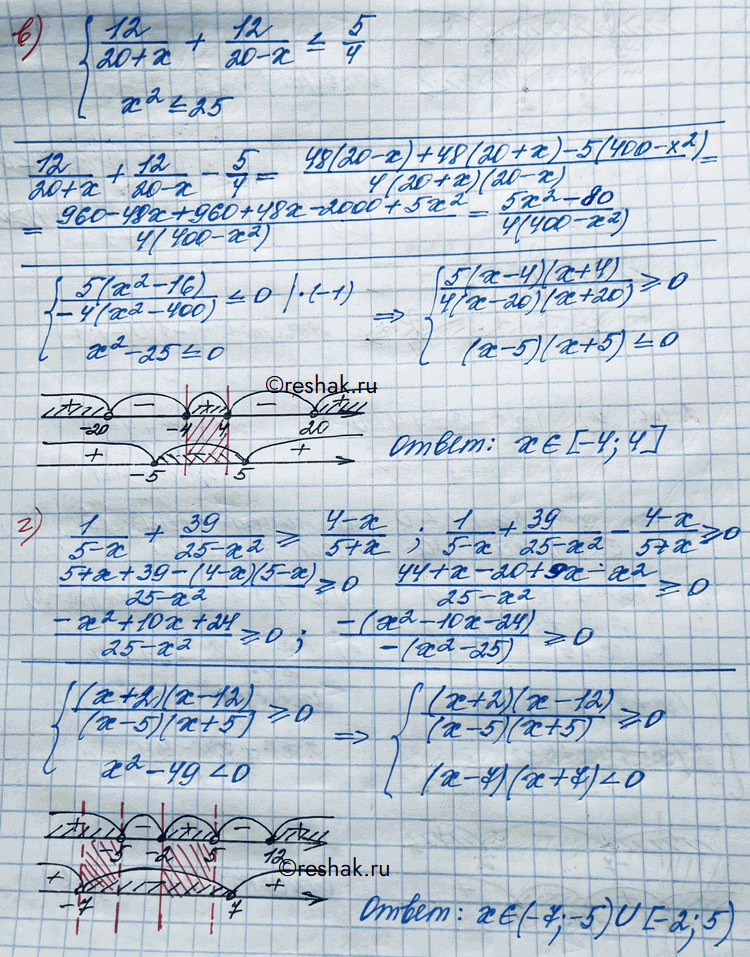 в) { 12/(20+x) + 12/(20-x) ≤ 5/4
x² ≤ 25
12/(20+x) + 12/(20-x) - 5/4 = (48(20-x)+48(20+x)-5(400-x²))/(4(20+x)(20-x)) =
= (960-48x+960+48x-2000+5x²)/(4(400-x²)) = (5x²-80)/(4(400-x²))
{ 5(x²-16)/(-4(x²-400)) ≤ 0 |·(-1) ⇒ { 5(x-4)(x+4)/(4(x-20)(x+20)) ≥ 0
x²-25 ≤ 0 (x-5)(x+5) ≤ 0
©reshak.ru
+ - + - +
-20 -4 4 20
+ - +
-5 5
Ответ: x∈[-4; 4]
г) 1/(5-x) + 39/(25-x²) ≥ (4-x)/(5+x) ; 1/(5-x) + 39/(25-x²) - (4-x)/(5+x) ≥ 0
(5+x+39-(4-x)(5-x))/(25-x²) ≥ 0 (44+x-20+9x-x²)/(25-x²) ≥ 0
(-x²+10x+24)/(25-x²) ≥ 0 ; -(x²-10x-24)/(-(x²-25)) ≥ 0
{ (x+2)(x-12)/((x-5)(x+5)) ≥ 0 ⇒ { (x+2)(x-12)/((x-5)(x+5)) ≥ 0
x²-49 < 0 (x-7)(x+7) < 0
+ - + - +
-5 -2 5 12
©reshak.ru
+ - +
-7 7
Ответ: x∈(-7; -5)∪[-2; 5)